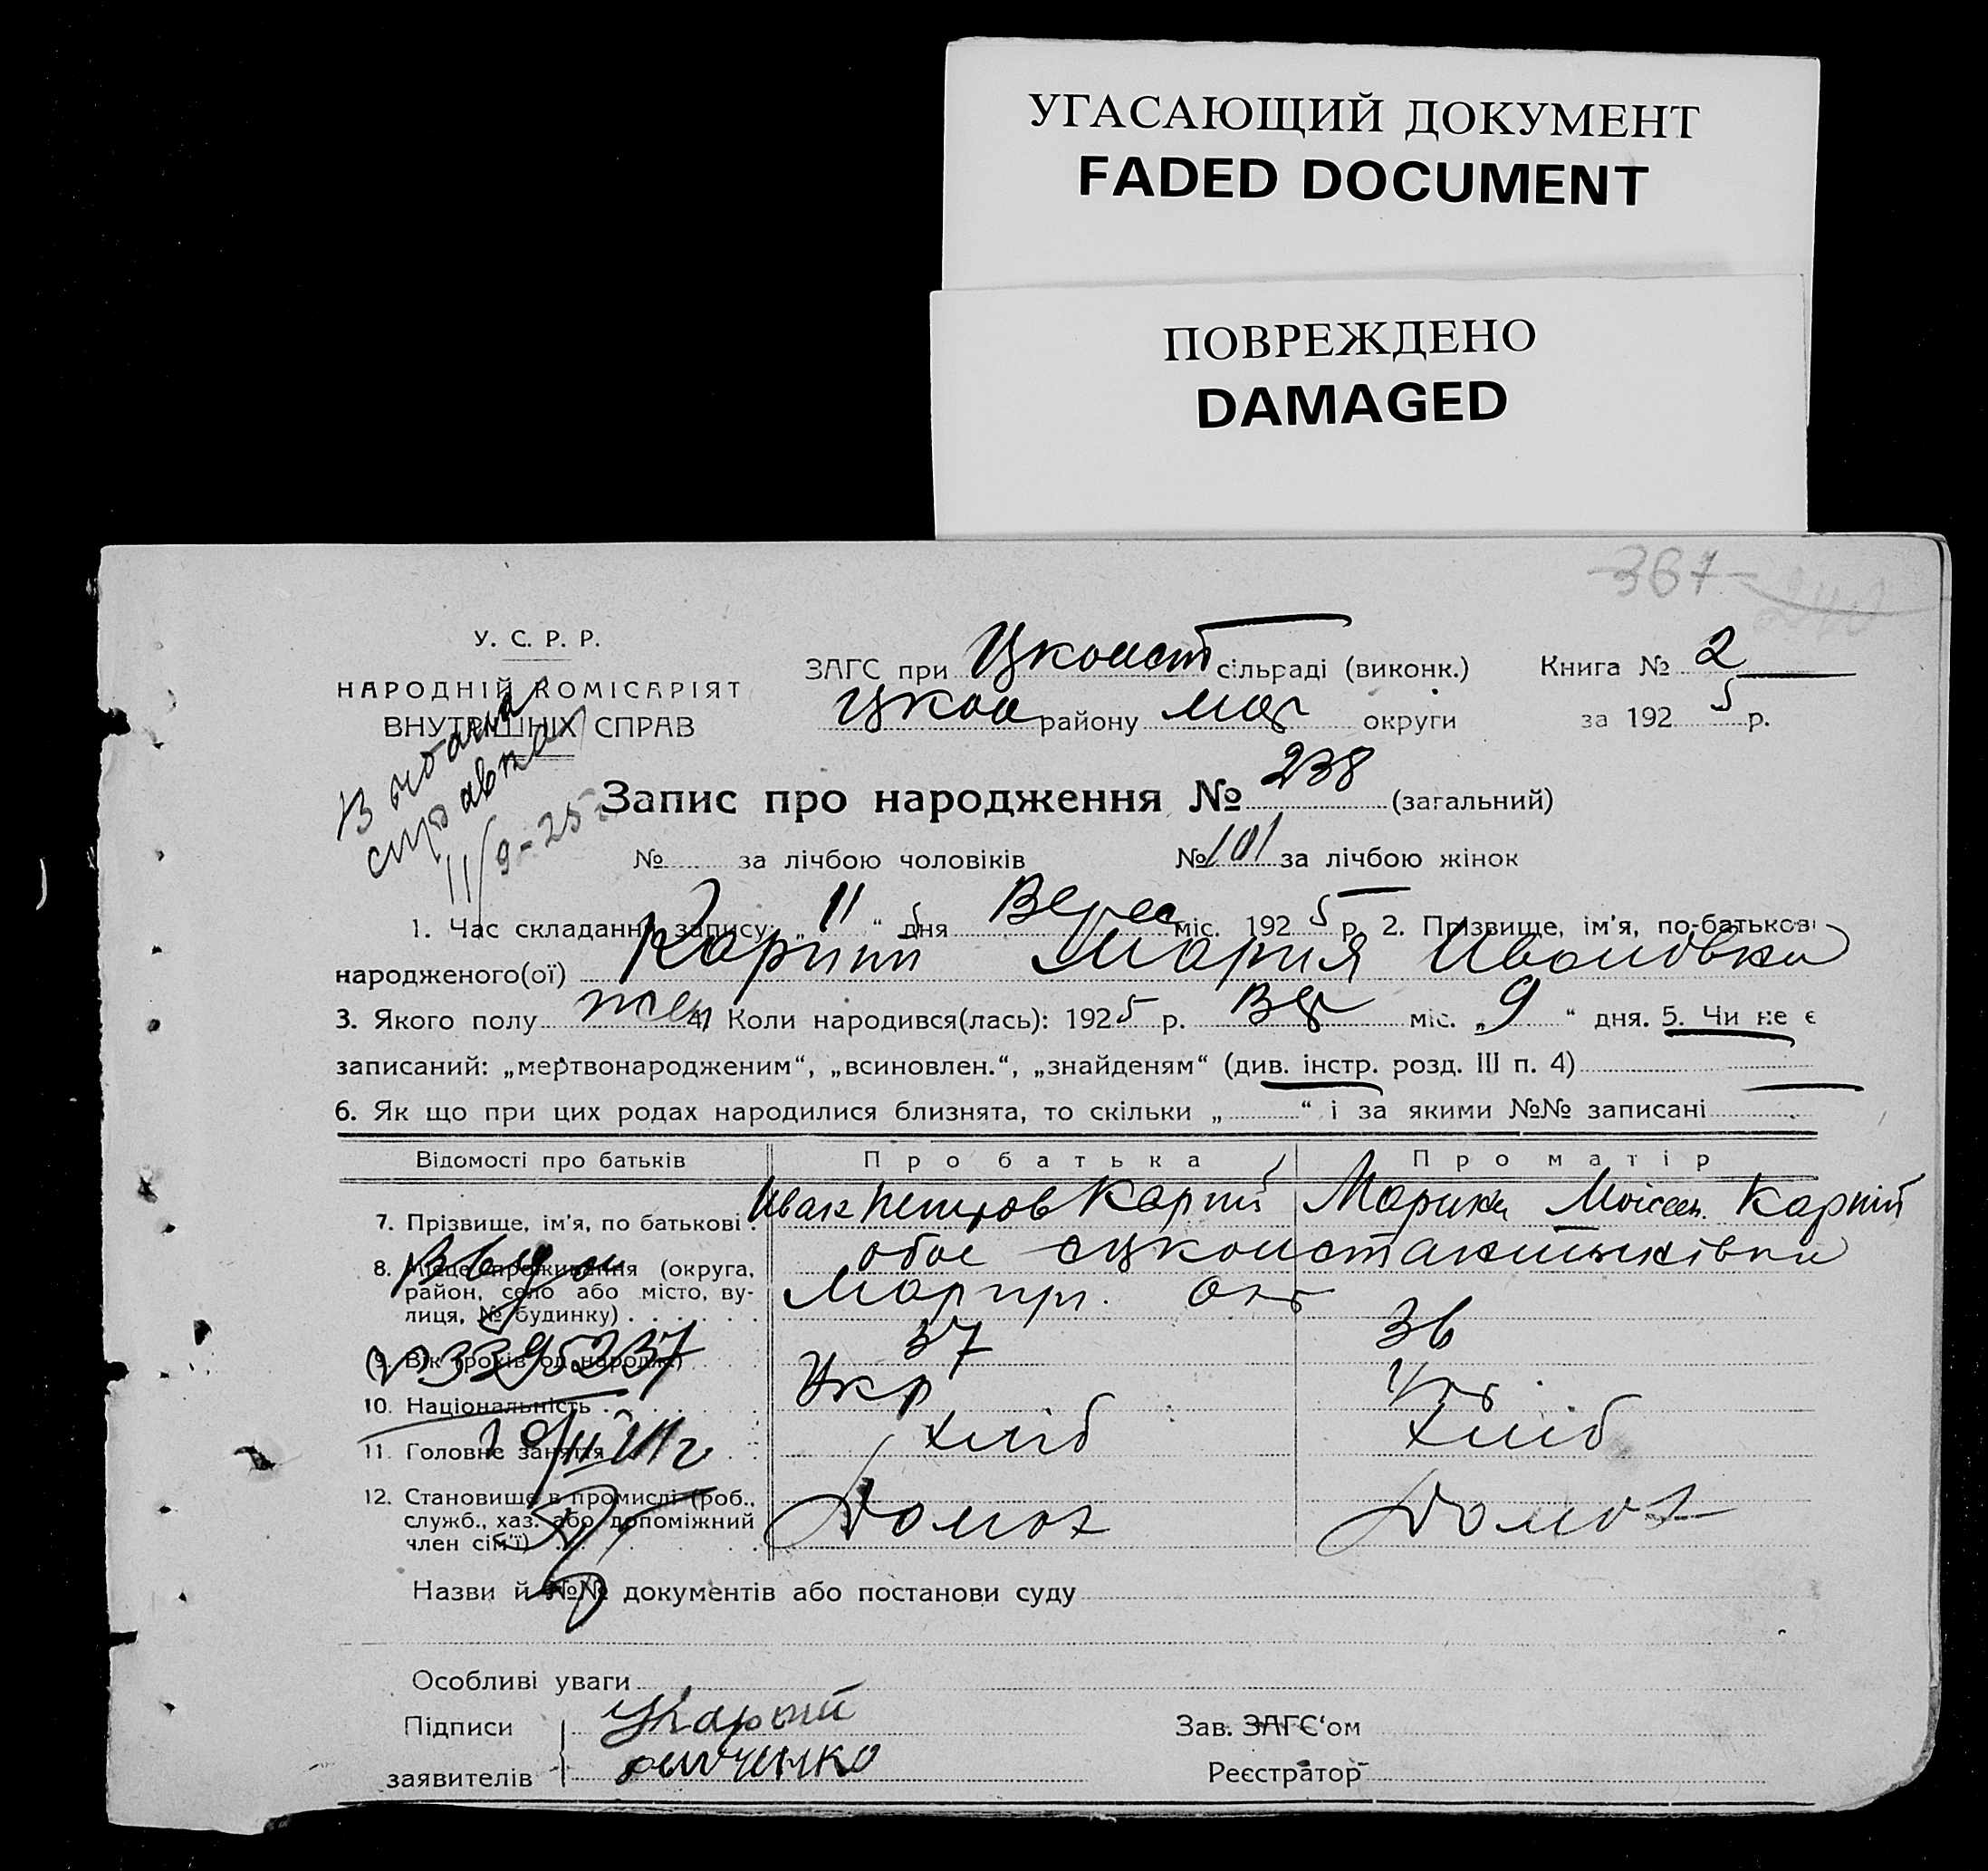 УГАСАЮЩИЙ ДОКУМЕНТ
FADED DOCUMENT
ПОВРЕЖДЕНО
DAMAGED
367
У. С. Р. Р.
НАРОДНІЙ КОМІСАРІЯТ
ВНУТРІШНІХ СПРАВ
ЗАГС при Цконст сільраді (виконк.) Книга № 2
району округи за 1925 р.
Видана
справка
11/9-25
Запис про народження № 238 (загальний)
№ за лічбою чоловіків № 101 за лічбою жінок
1. Час складання запису: „ 11 “ дня Верес міс. 1925 р. 2. Прізвище, ім'я, по-батькові
народженого(ої) Карпій Мария Ивановка
3. Якого полу жен 4. Коли народився(лась): 1925 р. Вер міс. „ 9 “ дня. 5. Чи не є
записаний: „мертвонародженим“, „всиновлен.“, „знайденям“ (див. інстр. розд. III п. 4)
6. Як що при цих родах народилися близнята, то скільки „ “ і за якими №№ записані
Відомості про батьків Про батька Про матір
7. Прізвище, ім'я, по батькові Иван Петров Карпій Марина Моісеев. Карпій
8. Місце проживання (округа, район, село або місто, вулиця, № будинку) обоє Марпр. Окр
9. Вік (років од народж.) 37 36
10. Національність Укр Укр.
11. Головне заняття Хліб Хліб
12. Становище в промислі (роб., служб., хаз. або допоміжний член сім'ї) Домох Домох
Назви й №№ документів або постанови суду
Особливі уваги
Підписи
заявителів
Зав. ЗАГС'ом
Реєстратор